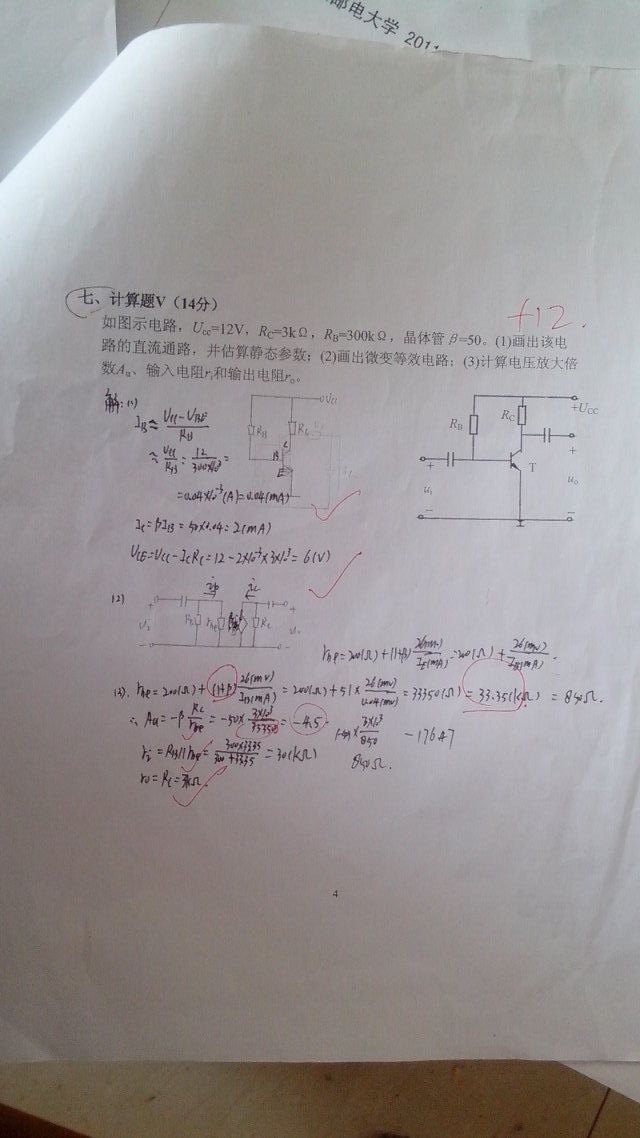 邮电大学 201
七、计算题V（14分）
+12.
如图示电路，Ucc=12V，RC=3kΩ，RB=300kΩ，晶体管β=50。(1)画出该电
路的直流通路，并估算静态参数；(2)画出微变等效电路；(3)计算电压放大倍
数Au、输入电阻ri和输出电阻ro。
解:(1)
IB≈ UCC-UBE/RB
≈ UCC/RB = 12/300×10³ =
=0.04×10⁻³(A)=0.04(mA)
IC=βIB=50×0.04=2(mA)
UCE=UCC-ICRC=12-2×10⁻³×3×10³=6(V)
UCC
RB
RC
B
C
E
RB
RC
+UCC
+
+
T
ui
uo
−
−
(2)
iB
iC
+
+
RB
rbe
RC
−
−
rbe=200(Ω)+(1+β)26(mV)/IE(mA)=200(Ω)+26(mV)/IB(mA).
(3). rbe=200(Ω)+(1+β)26(mV)/IB(mA)=200(Ω)+51×26(mV)/0.04(mV)=33350(Ω)=33.35(kΩ) =850Ω.
∴Au=-β RC/rbe=-50×3×10³/33350=-4.5
×3×10³/850 -176.47
ri=RB//rbe=300×33.35/300+33.35=30(kΩ)
850Ω.
ro=RC=3kΩ.
4